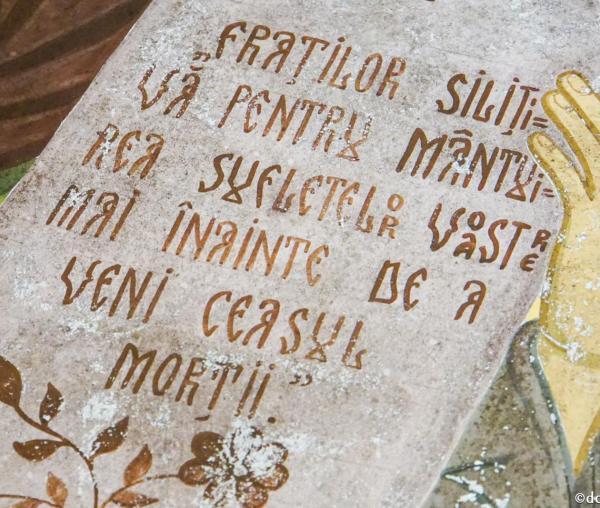 „FRAȚILOR SILIȚI=
VĂ PENTRU MÂNTUI=
REA SUFLETELOR VOASTRE
MAI ÎNAINTE DE A
VENI CEASUL
MORȚII.”
©do